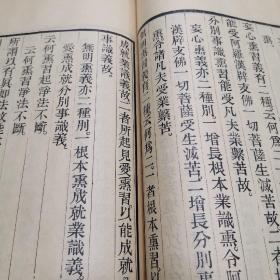 受阿羅漢辟支佛一切菩薩生滅苦
分別事識熏習能受凡夫業繫苦故
妄心熏義亦二種別一增長根本業識熏令阿羅
漢辟支佛一切菩薩受生滅苦二增長分別事
熏令諸凡夫受業繫苦
義有二種云何為二一者根本熏習以
成就業識義故二者所起見愛熏習以能成就
事識義故
無明熏義亦二種別一根本熏成就業識義
愛熏成就分別事識義
云何熏習起淨法不斷
云何熏習淨法不斷
所謂以有真如法故能